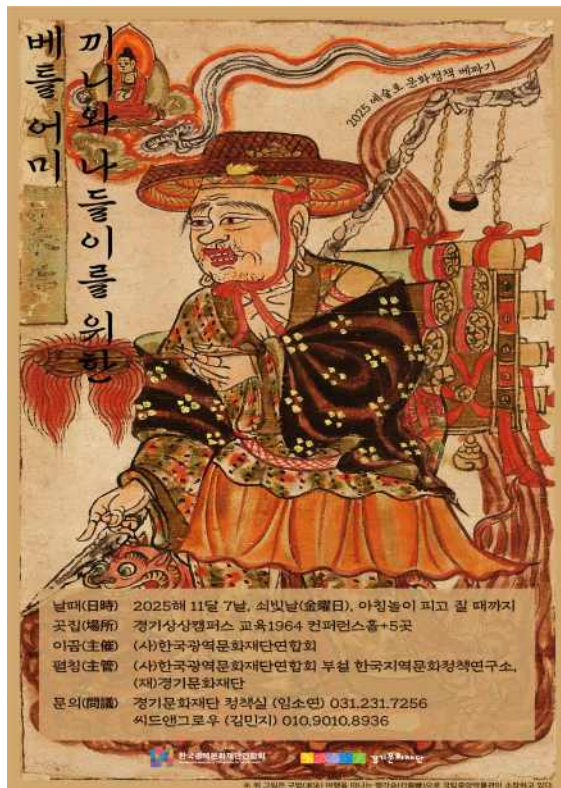 끼니와 나들이를 위한
베틀 어미
2025 예술로 문화정책 베짜기
날때(日時) 2025해 11달 7날, 쇠빛날(金曜日), 아침놀이 피고 질 때까지
곳집(場所) 경기상상캠퍼스 교육1964 컨퍼런스홀+5곳
이끔(主催) (사)한국광역문화재단연합회
펼침(主管) (사)한국광역문화재단연합회 부설 한국지역문화정책연구소,
(재)경기문화재단
문의(問議) 경기문화재단 정책실 (임소연) 031.231.7256
씨드앤그로우 (김민지) 010.9010.8936
한국광역문화재단연합회
경기문화재단